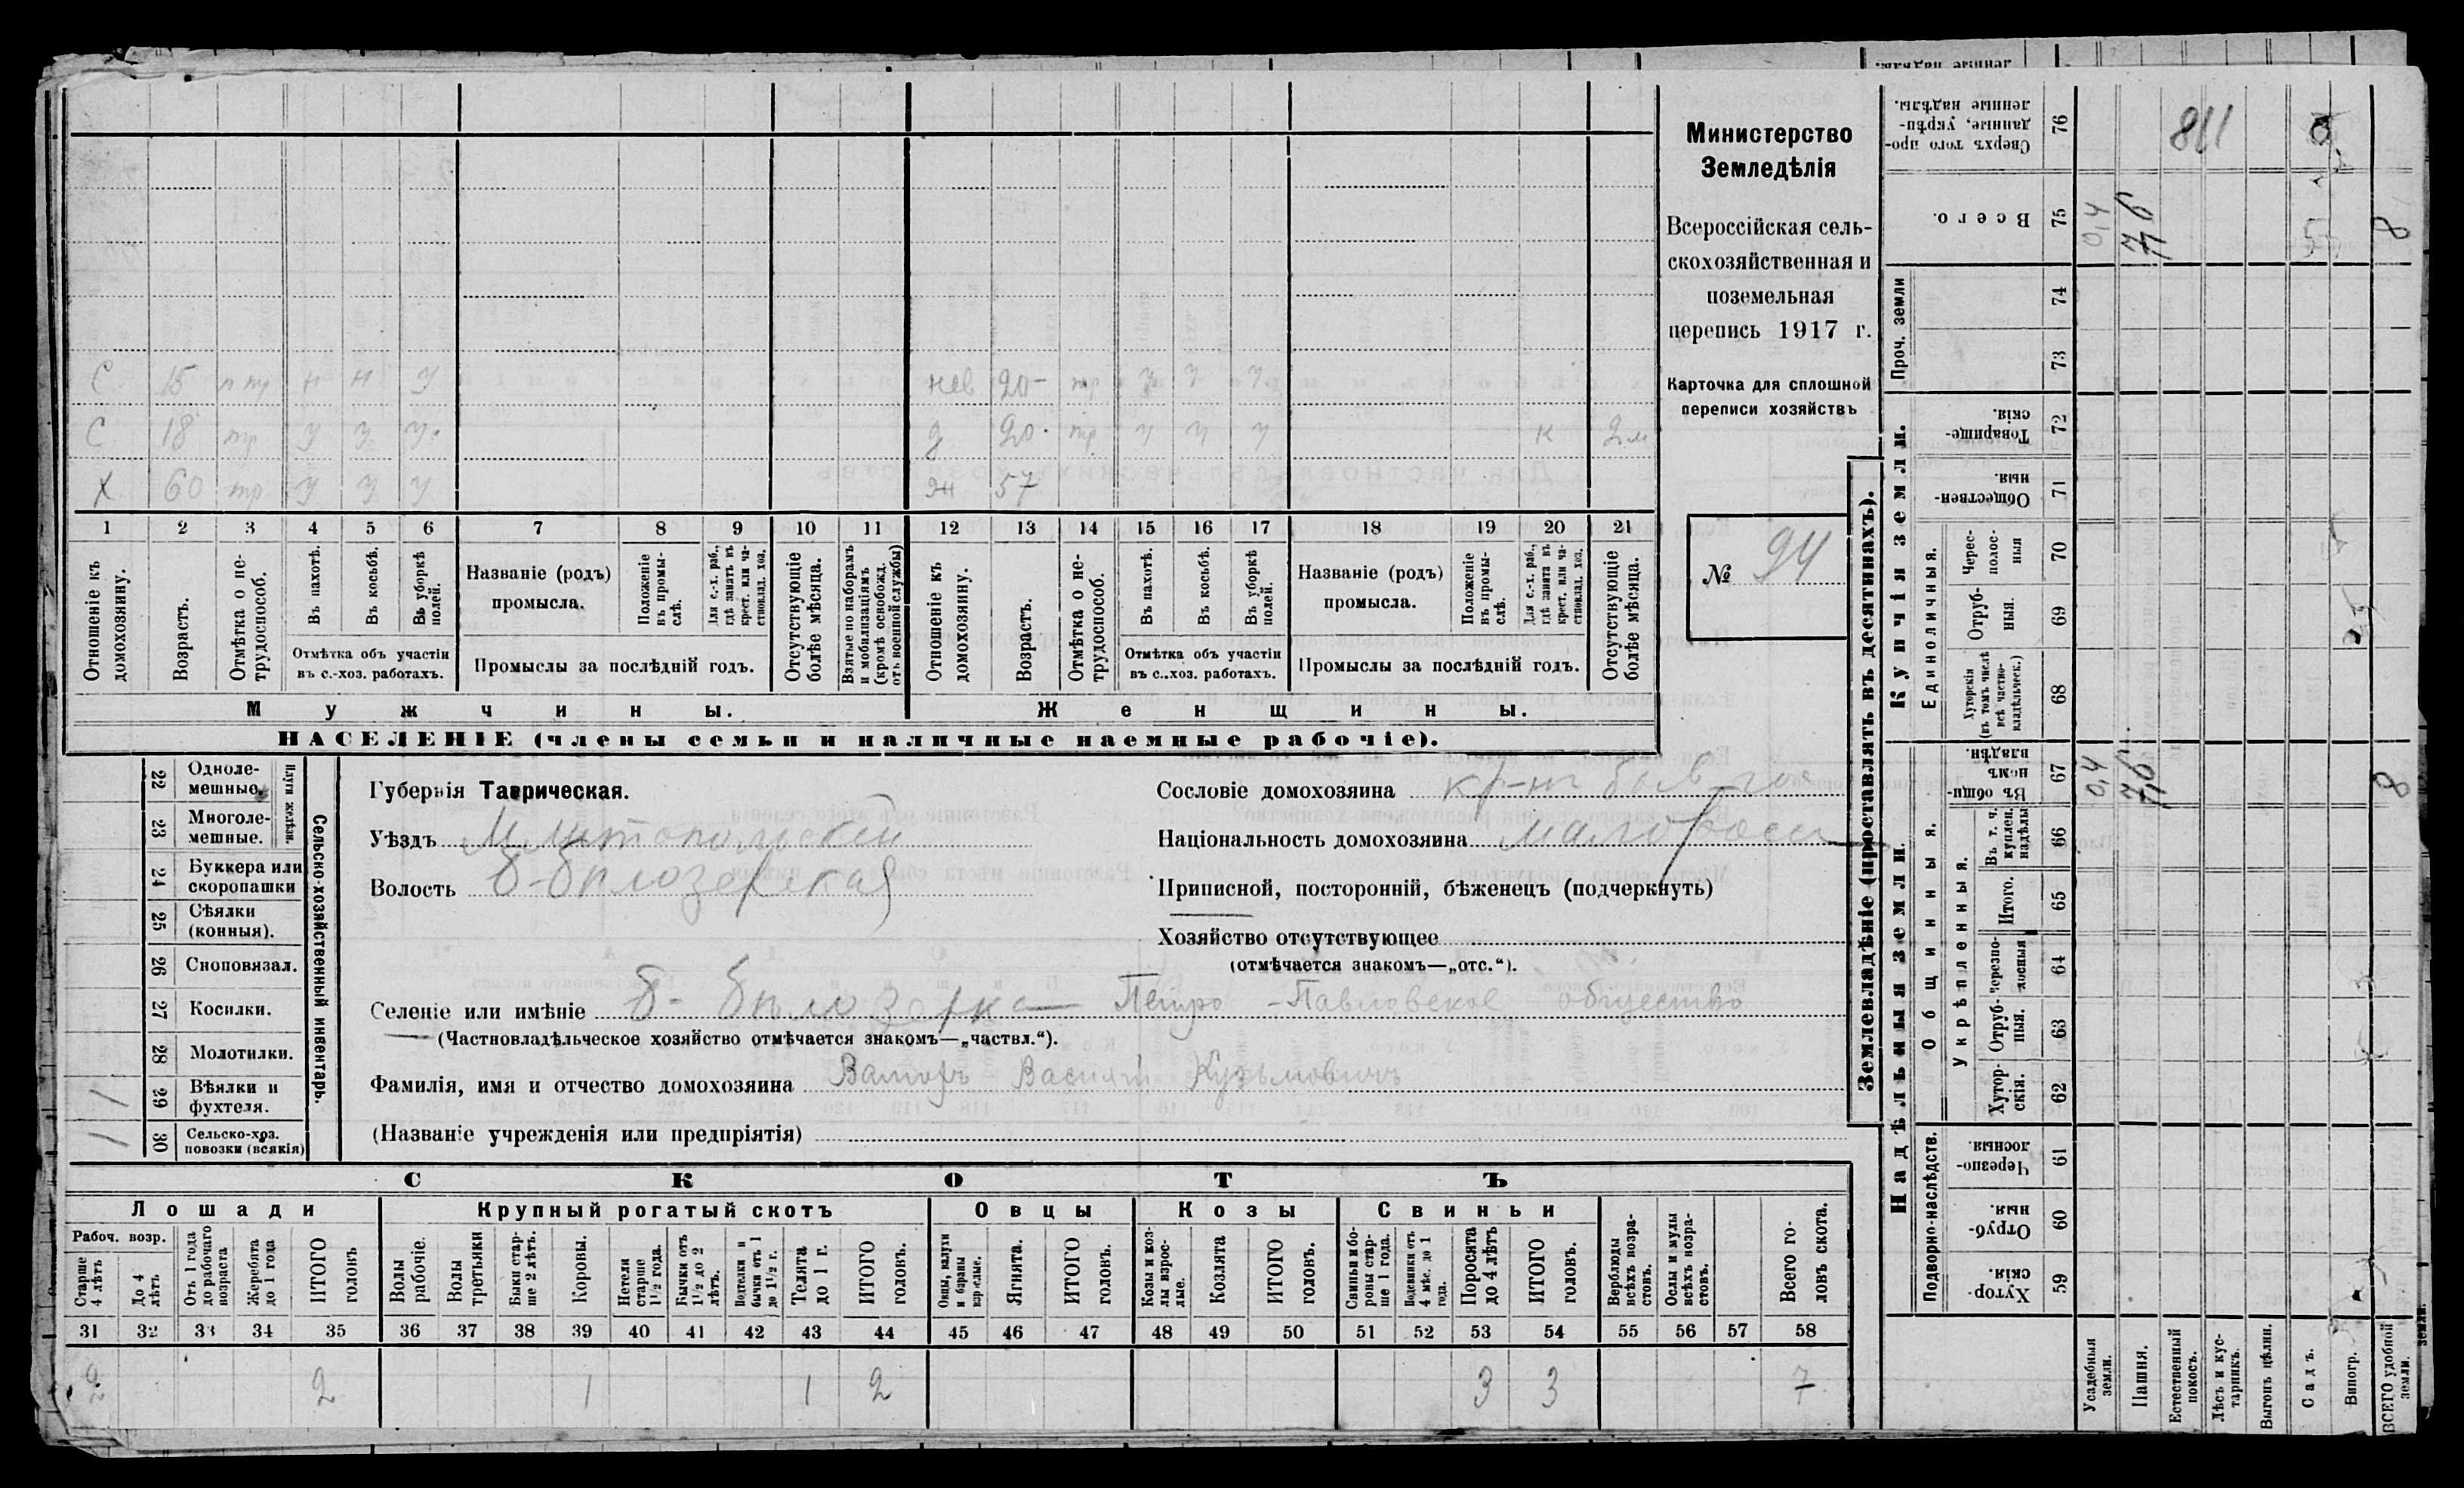 Министерство
Земледѣлія
Всероссійская сель-
скохозяйственная и
поземельная
перепись 1917 г.
Карточка для сплошной
переписи хозяйствъ
№ 94
С 15 п тр н н у нев 20 - тр у у у
С 18 тр у у у д 20 тр у у у к 2 м
Х 60 тр у у у жн 57
1 2 3 4 5 6 7 8 9 10 11 12 13 14 15 16 17 18 19 20 21
Отношеніе къ домохозяину.
Возрастъ.
Отмѣтка о не-трудоспособ.
Въ пахотѣ.
Въ косьбѣ.
Въ уборкѣ полей.
Отмѣтка объ участіи въ с.-хоз. работахъ.
Названіе (родъ) промысла.
Положеніе въ промы-слѣ.
Для с.-х. раб., гдѣ занятъ въ крест. или ча-стновлад. хоз.
Промыслы за послѣдній годъ.
Отсутствующіе болѣе мѣсяца.
Взятые по наборамъ и мобилизаціямъ (кромѣ освобожд. отъ военной службы)
Отношеніе къ домохозяину.
Возрастъ.
Отмѣтка о не-трудоспособ.
Въ пахотѣ.
Въ косьбѣ.
Въ уборкѣ полей.
Отмѣтка объ участіи въ с..хоз. работахъ.
Названіе (родъ) промысла.
Положеніе въ промы-слѣ.
Для с.-х. раб., гдѣ занята въ крест. или ча-стновлад. хоз.
Промыслы за послѣдній годъ.
Отсутствующіе болѣе мѣсяца.
Мужчины. Женщины.
НАСЕЛЕНІЕ (члены семьи и наличные наемные рабочіе).
Сельско-хозяйственный инвентарь.
Плуги желѣзн.
22 Одноле-мешные.
23 Многоле-мешные.
24 Буккера или скоропашки
25 Сѣялки (конныя).
26 Сноповязал.
27 Косилки.
28 Молотилки.
29 Вѣялки и фухтеля. 1
30 Сельско-хоз. повозки (всякія) 1
Губернія Таврическая.
Уѣздъ Мелитопольскій
Волость Б-Бѣлозерская
Сословіе домохозяина кр-нъ быв. гос
Національность домохозяина малоросс
Приписной, посторонній, бѣженецъ (подчеркнуть)
Хозяйство отсутствующее
(отмѣчается знакомъ—„отс.“).
Селеніе или имѣніе Б- Бѣлозерка Петро-Павловское общество
(Частновладѣльческое хозяйство отмѣчается знакомъ—„частвл.“).
Фамилія, имя и отчество домохозяина Василій Кузьмовичъ
(Названіе учрежденія или предпріятія)
СКОТЪ
Лошади Крупный рогатый скотъ Овцы Козы Свиньи
Рабоч. возр.
Старше 4 лѣтъ
До 4 лѣтъ
Отъ 1 года до рабочаго возраста
Жеребята до 1 года
ИТОГО головъ
Волы рабочіе.
Волы третьяки
Быки стар-ше 2 лѣтъ.
Коровы.
Нетели старше 1½ года.
Бычки отъ 1½ до 2 лѣтъ.
Подтелки и бычки отъ 1 до 1½ г.
Телята до 1 г.
ИТОГО головъ.
Овцы, валухи и бараны взрослые.
Ягнята.
ИТОГО головъ.
Козы и коз-лы взрос-лые.
Козлята
ИТОГО головъ.
Свиньи и бо-ровы стар-ше 1 года.
Подсвинки отъ 4 мѣс. до 1 года.
Поросята до 4 лѣтъ
ИТОГО головъ.
Верблюды всѣхъ возра-стовъ.
Ослы и мулы всѣхъ возра-стовъ.
Всего го-ловъ скота.
31 32 33 34 35 36 37 38 39 40 41 42 43 44 45 46 47 48 49 50 51 52 53 54 55 56 57 58
2 2 1 1 2 3 3 7
Землевладѣніе (проставлять въ десятинахъ).
Надѣльныя земли. Купчія земли. Проч. земли
Подворно-наслѣдств.
Общинныя.
Укрѣпленныя.
Единоличныя.
59 Хутор-скія.
60 Отруб-ныя.
61 Черезпо-лосныя
62 Хутор-скія.
63 Отруб-ныя.
64 Черезпо-лосныя
65 Итого.
66 Въ т. ч. куплен. надѣлы
67 Въ общи-номъ владѣн. 0,4 7,6 8
68 Хуторскія (въ томъ числѣ всѣ частно-владѣльческ.)
69 Отруб-ныя.
70 Черес-полос-ныя
71 Обществен-ныя.
72 Товарище-скія.
73
74
75 Всего. 0,4 7,6 8
76 Сверхъ того про-данные, укрѣп-ленные надѣлы. 811
Усадебныя земли.
Пашня.
Естественный покосъ.
Лѣсъ и кус-тарникъ.
Выгонъ цѣлин.
Садъ.
Виногр.
ВСЕГО удобной земли.